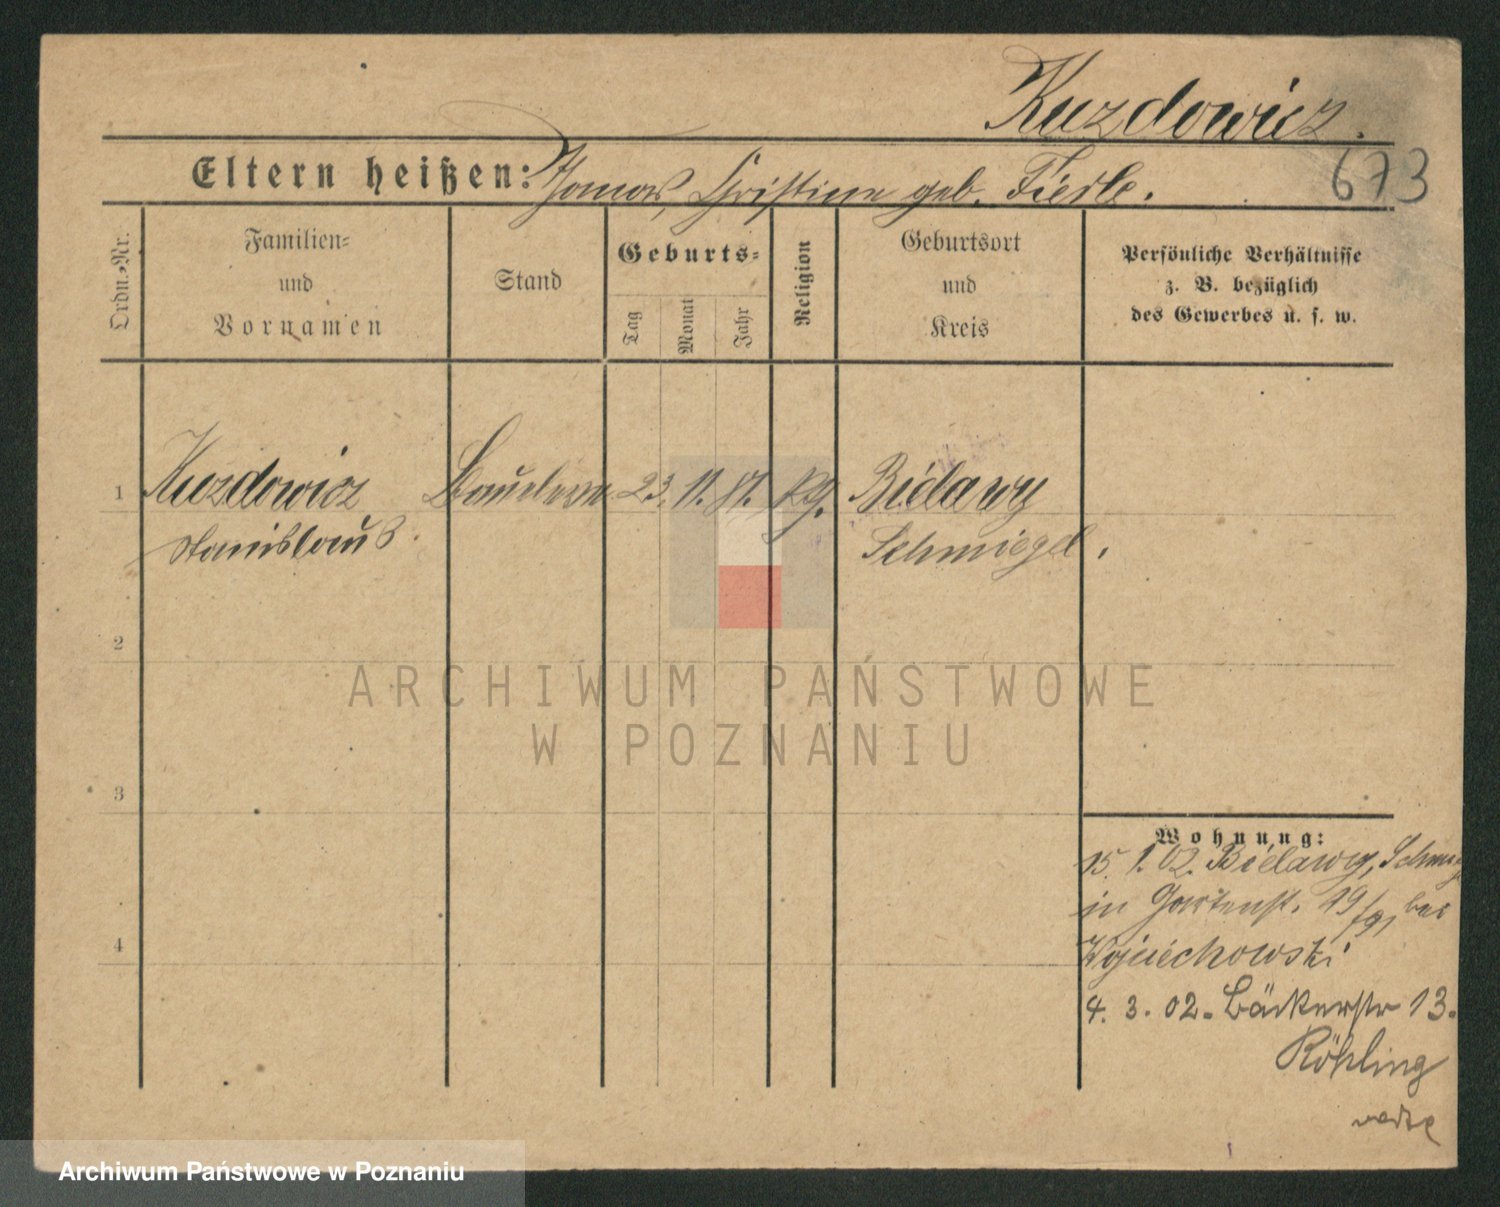 Kuzdowicz.
673
Eltern heißen: Thomas, Christine geb. Fierle.
Ordn.-Nr.
Familien-
und
Vornamen
Stand
Geburts-
Tag
Monat
Jahr
Religion
Geburtsort
und
Kreis
Persönliche Verhältnisse
z. B. bezüglich
des Gewerbes u. s. w.
1 Kuzdowicz 23. 11. 81. Bielawy
Stanislaus. Schmiegel.
2
ARCHIWUM PAŃSTWOWE
W POZNANIU
3
Wohnung:
15. 1. 02. Bielawy,
in Gartenst. 19 bei
Wojciechowski
4
4. 3. 02. Bäckerstr 13.
Röhling
Archiwum Państwowe w Poznaniu